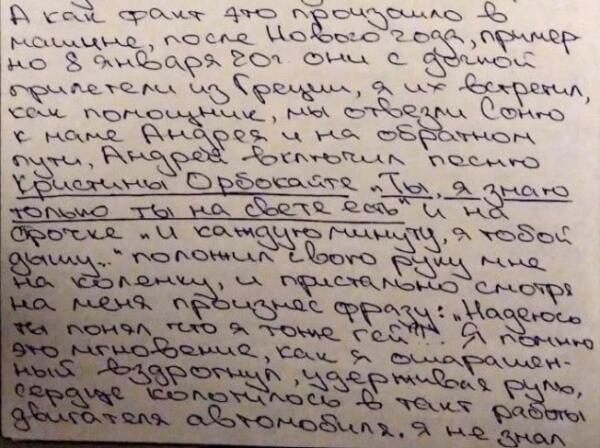 А как факт это произошло в
машине, после Нового года, пример
но 8 января 20г. они с дочкой
прилетели из Греции, я их встретил,
как помощник, мы отвезли Соню
к маме Андрея и на обратном
пути, Андрей включил песню
Кристины Орбокайте „Ты, я знаю
только ты на свете есть" и на
строчке „И каждую минуту, я тобой
дышу.." положил свою руку мне
на коленку, и пристально смотря
на меня произнес фразу: „Надеюсь
ты понял что я тоже гей?". Я помню
это мгновение, как я ошарашен-
ный вздрогнул, удерживая руль,
сердце колотилось в такт работы
двигателя автомобиля. Я не знал